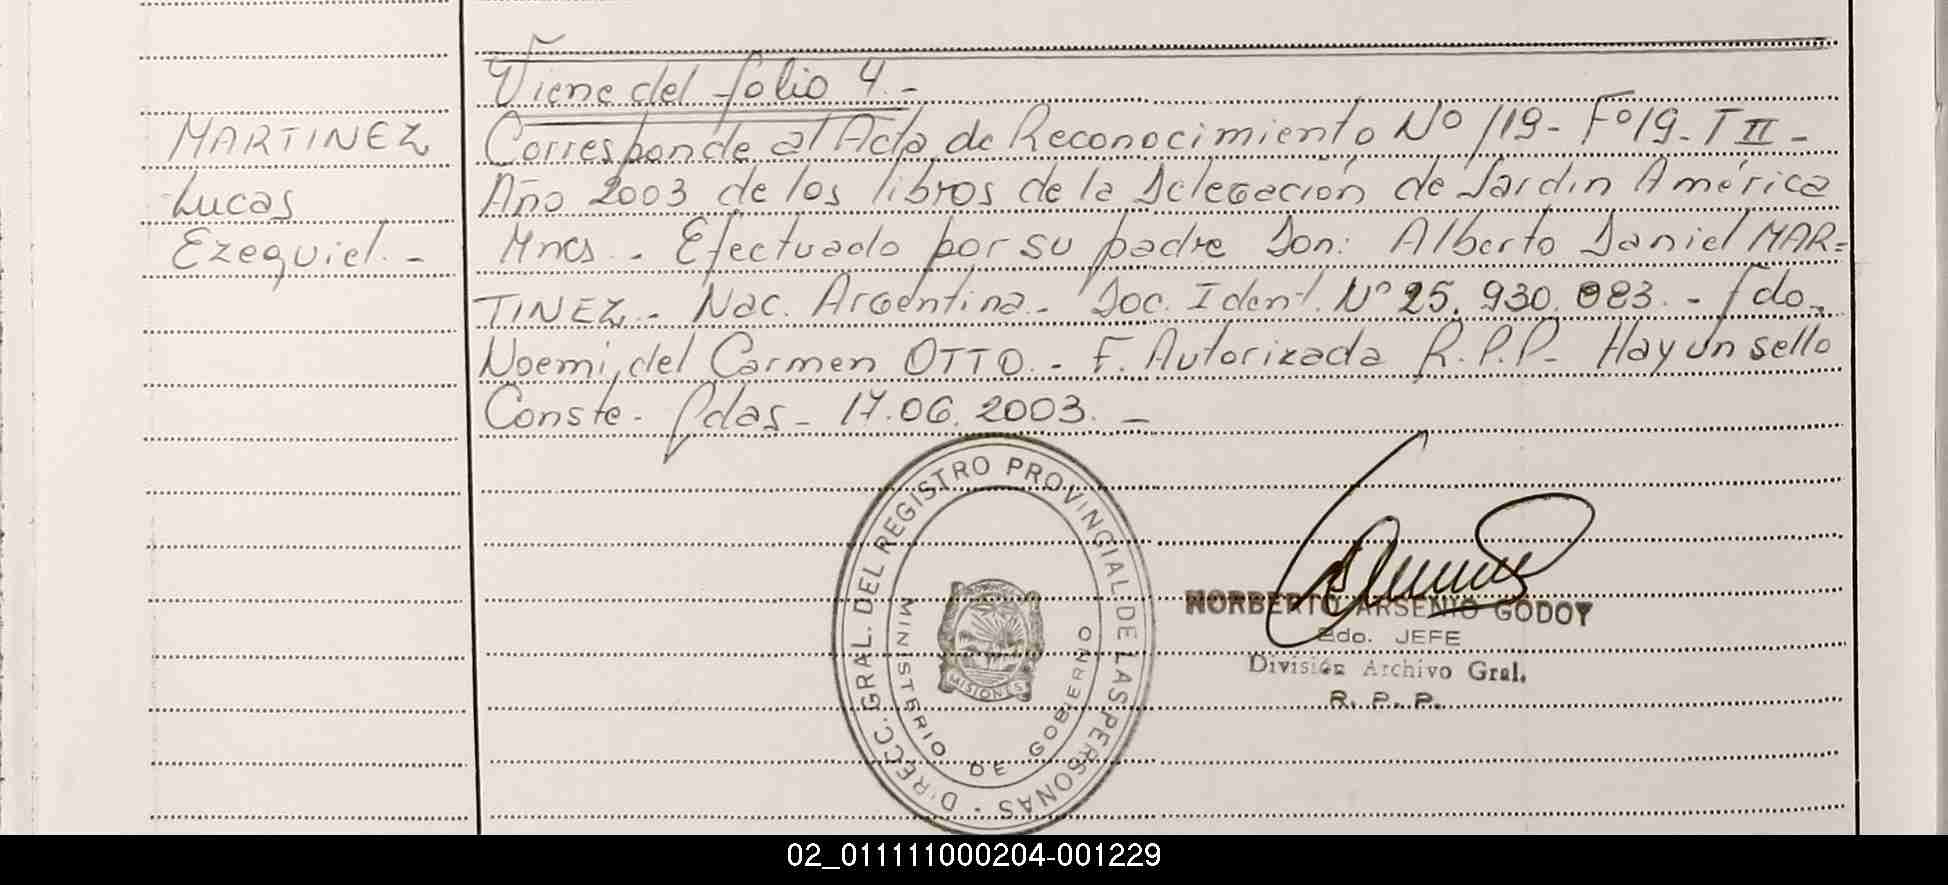 Viene del folio 4.-
MARTINEZ
Lucas
Ezequiel.-
Corresponde al Acta de Reconocimiento Nº 119- Fº 19- T II-
Año 2003 de los libros de la Delegación de Jardin América
Mnes.- Efectuado por su padre Don: Alberto Daniel MAR=
TINEZ.- Nac. Argentina.- Doc. Ident. Nº 25.930.083.- fdo.
Noemi del Carmen OTTO.- F. Autorizada R.P.P- Hay un sello
Conste- Pdas- 17.06.2003.-
DIRECC. GRAL. DEL REGISTRO PROVINCIAL DE LAS PERSONAS -
MINISTERIO DE GOBIERNO
MISIONES
NORBERTO ARSENIO GODOY
2do. JEFE
División Archivo Gral.
R. P. P.
02_011111000204-001229